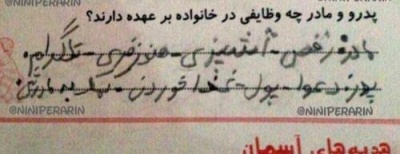 @NINIPERARIN
@NINIPERARIN
پدرو و مادر چه وظایفی در خانواده بر عهده دارند؟
مادر: رقص - آشپزی - هنوز قری - تلگرام
پدر: دعوا - پول - غذا خوردن -
@NINIPERARIN
@NINIPERARIN
هدیه‌های آسمان